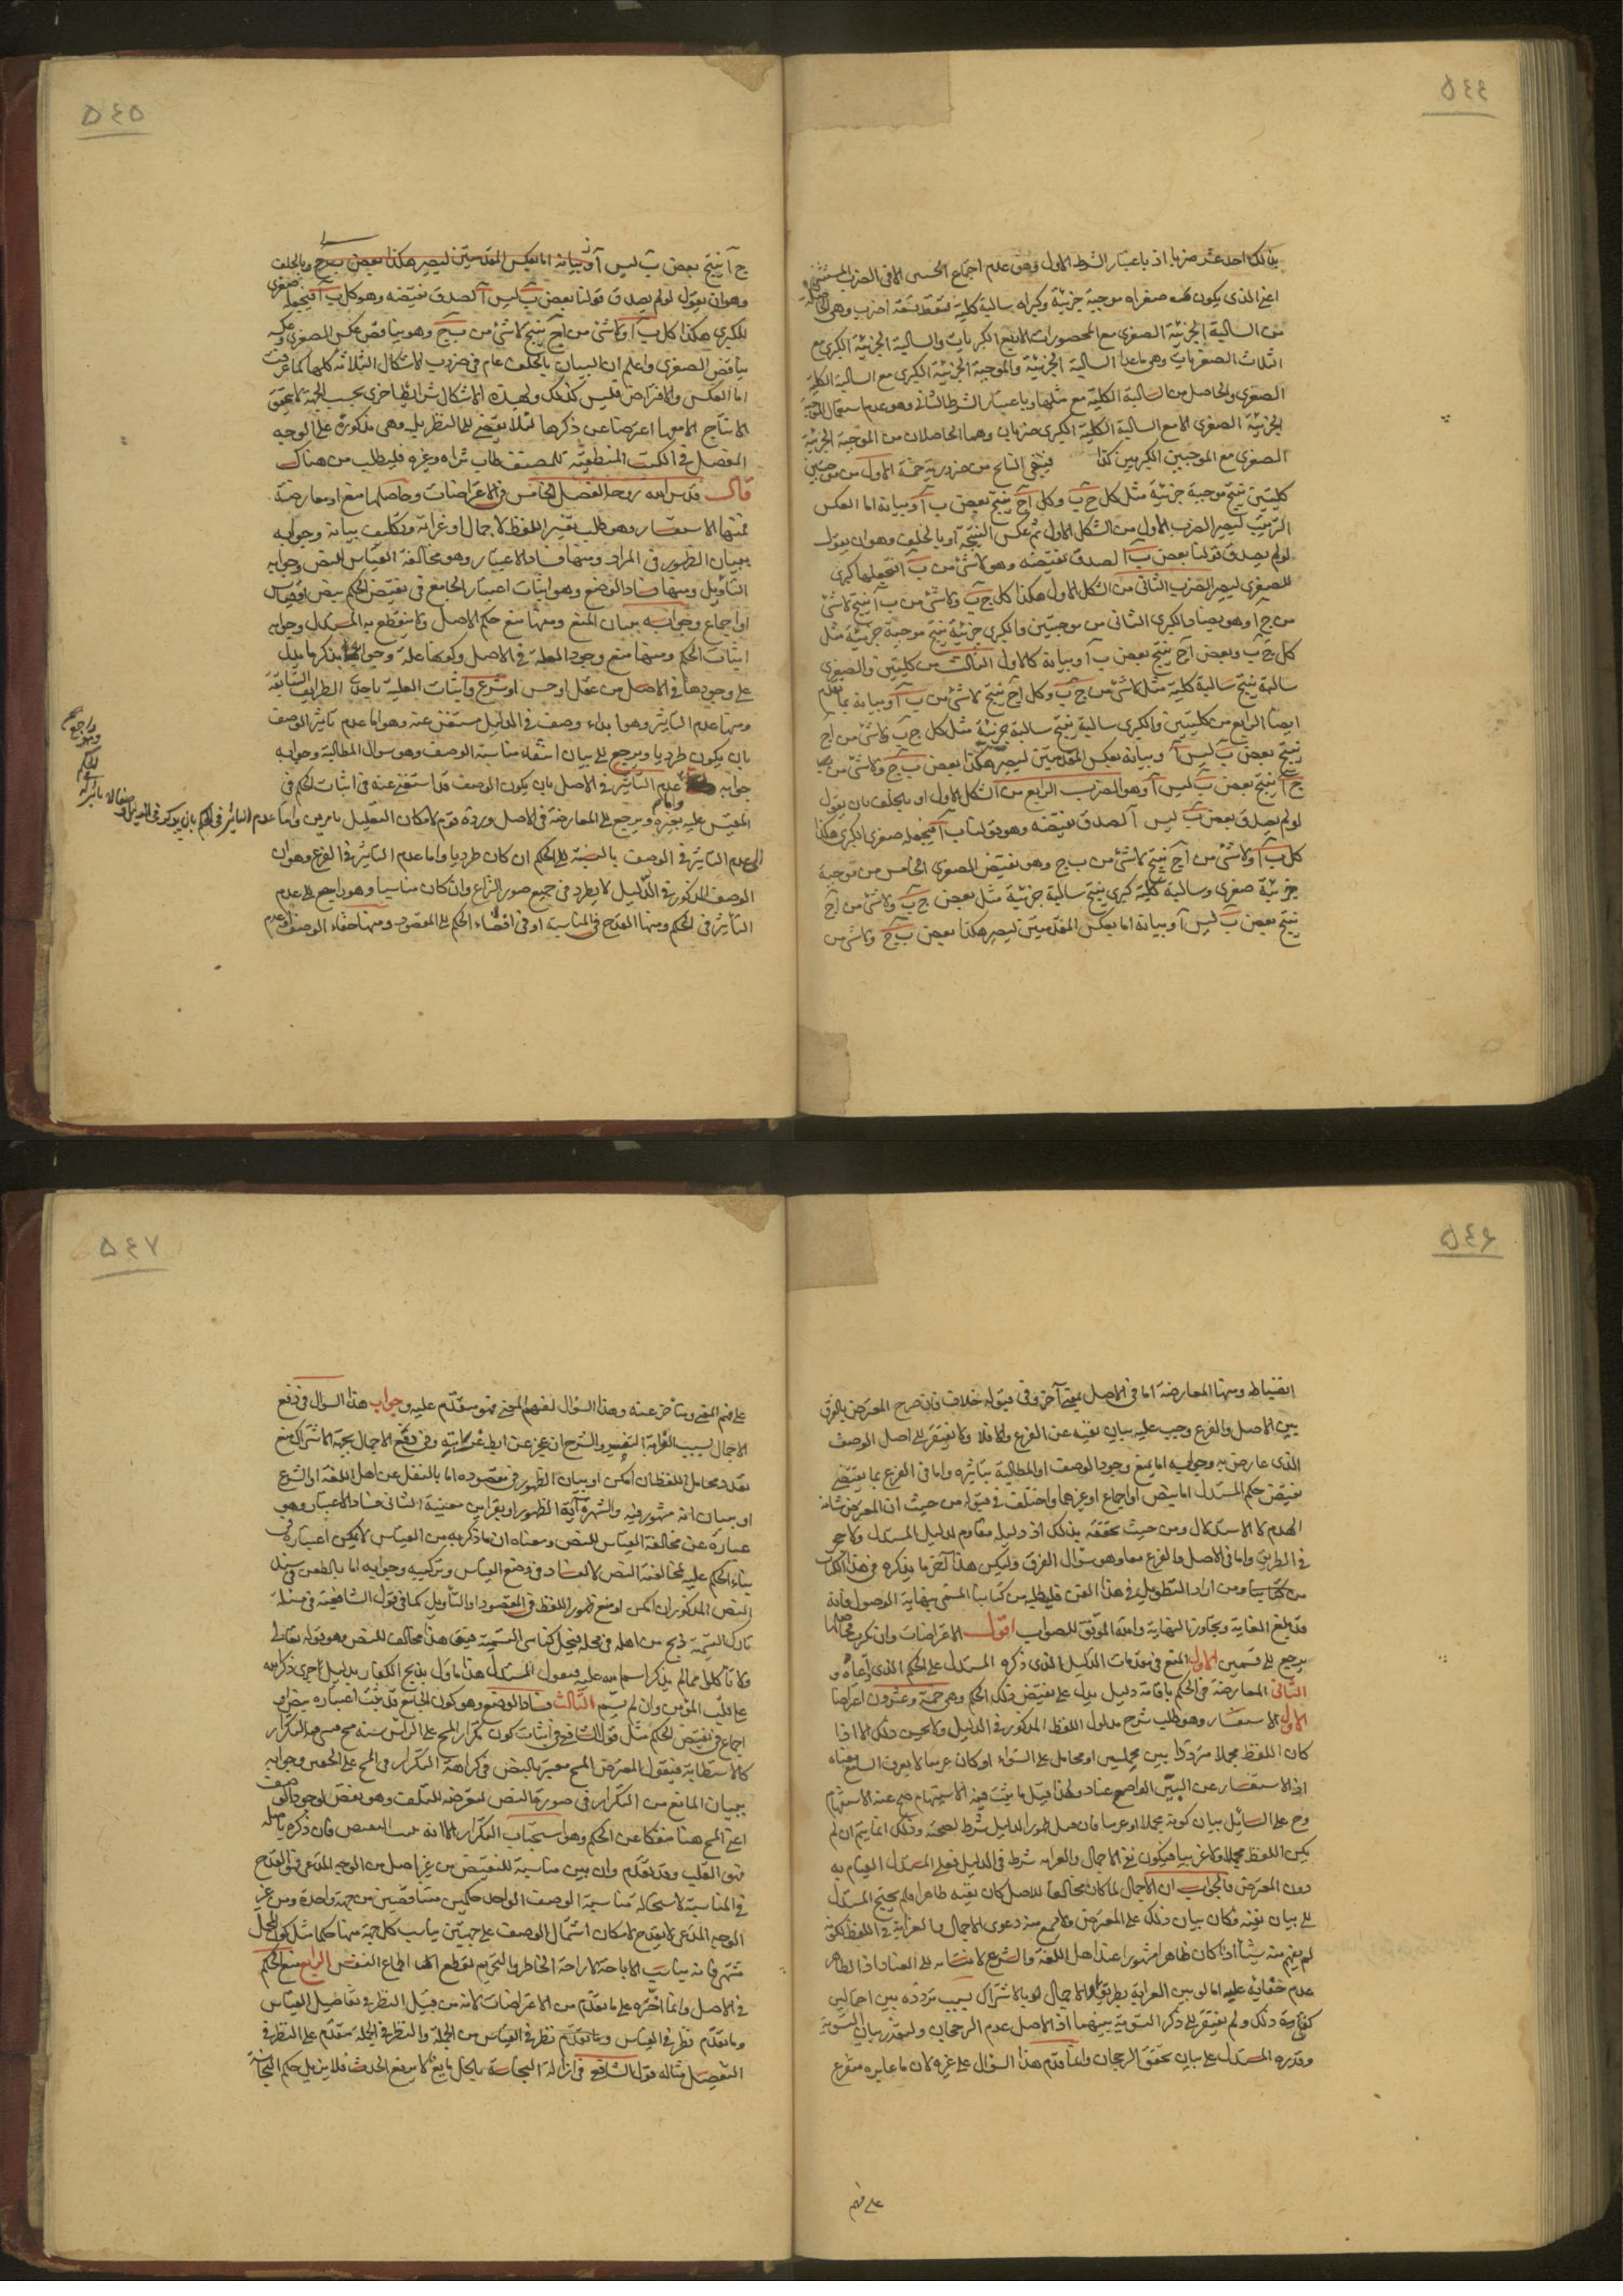 ٥٤٤
بذلك احد عشر ضربا اذ باعتبار الشرط الاول وهو عدم اجتماع الخستين الا فى الضرب المستثنى
اعنى الذى يكون صغراه موجبة جزئية وكبراه سالبة كلية فقط تسقط تسعة اضرب وهى الحاصلة
من السالبة الجزئية الصغرى مع المحصورات الاربع الكبريات والسالبة الجزئية الكبرى مع
الثلاث الصغريات وهى ماعدا السالبة الجزئية والموجبة الجزئية الكبرى مع السالبة الكلية
الصغرى والحاصل من السالبة الكلية مع مثلها وباعتبار الشرط الثانى وهو عدم استعمال الموجبة
الجزئية الصغرى الا مع السالبة الكلية الكبرى ضربان وهما الحاصلان من الموجبة الجزئية
الصغرى مع الموجبتين الكبريين كذا فبقى الناتج من ضروريه خمسة الاول من موجبتين
كليتين ينتج موجبة جزئية مثل كل ج ب وكل آ ج ينتج بعض ب آ وبيانه اما العكس
الترتيب ليصير الضرب الاول من الشكل الاول ثم عكس النتيجة او بالخلف وهو ان يقول
لو لم يصدق قولنا بعض ب آ لصدق نقيضه وهو لاشئ من ب آ فنجعلها كبرى
للصغرى ليصير الضرب الثانى من الشكل الاول هكذا كل ج ب ولاشئ من ب آ ينتج لاشئ
من ج آ وهو يضاد الكبرى الثانى من موجبتين والكبرى جزئية ينتج موجبة جزئية مثل
كل ج ب وبعض آ ج ينتج بعض ب آ وبيانه كالاول الثالث من كليتين والصغرى
سالبة ينتج سالبة كلية مثل لاشئ من ج ب وكل آ ج ينتج لاشئ من ب آ وبيانه بما تقدم
ايضا الرابع من كليتين والكبرى سالبة ينتج سالبة جزئية مثل كل ج ب ولاشئ من آ ج
ينتج بعض ب ليس آ وبيانه بعكس المقدمتين ليصير هكذا بعض ب ج ولاشئ من
ج آ ينتج بعض ب ليس آ وهو الضرب الرابع من الشكل الاول او بالخلف بان يقول
لو لم يصدق بعض ب ليس آ لصدق نقيضه وهو قولنا كل ب آ فنجعله صغرى الكبرى هكذا
كل ب آ ولاشئ من آ ج ينتج لاشئ من ب ج وهو نقيض الصغرى الخامس من موجبة
جزئية صغرى وسالبة كلية كبرى ينتج سالبة جزئية مثل بعض ج ب ولاشئ من آ ج
ينتج بعض ب ليس آ وبيانه اما بعكس المقدمتين ليصير هكذا بعض ب ج ولاشئ من
٥٤٥
ج آ ينتج بعض ب ليس آ وبيانه اما بعكس المقدمتين ليصير هكذا بعض ب ج وبالخلف
وهو ان يقول لو لم يصدق قولنا بعض ب ليس آ لصدق نقيضه وهو كل ب آ فنجعله صغرى
للكبرى هكذا كل ب آ ولاشئ من آ ج ينتج لاشئ من ب ج وهو يناقض عكس الصغرى وعكسه
يناقض الصغرى واعلم ان البيان بالخلف عام فى ضروب الاشكال الثلاثة كلها كما عرفت
اما العكس والافتراض فليس كذلك ولهذه الاشكال شرايط اخرى بحسب الجهة لا يتحقق
الانتاج الا بها اعرضنا عن ذكرها لئلا يفضى الى التطويل وهى مذكورة على الوجه
المفصل فى الكتب المنطقية للمصنف طاب ثراه وغيره فليطلب من هناك
قال قدس الله روحه الفصل الخامس فى الاعتراضات وحاصلها منع او معارضة
فمنها الاستفسار وهو طلب تفسير اللفظ لاجمال او غرابة وتكليف بيانه وجوابه
ببيان الظهور فى المراد ومنها فساد الاعتبار وهو مخالفة القياس النص وجوابه
التأويل ومنها فساد الوضع وهو اثبات اعتبار الجامع فى نقيض الحكم بنص او قياس
او اجماع وجوابه ببيان المنع ومنها منع حكم الاصل ولا ينقطع به المستدل وجوابه
اثبات الحكم ومنها منع وجود العلة فى الاصل وكونها علة وجوابه بذكر ما يدل
على وجودها فى الاصل من عقل او حس او شرع واثبات العلية باحدى الطرايق السابقة
ومنها عدم التاثير وهو ابداء وصف فى الدليل مستغنى عنه وهو اما عدم تاثير الوصف
بان يكون طرديا ويرجع الى بيان انتفاء مناسبة الوصف وهو سوال المطالبة وجوابه
جوابه واما عدم التاثير فى الاصل بان يكون الوصف قد استغنى عنه فى اثبات الحكم فى
المقيس عليه بغيره ويرجع الى المعارضة فى الاصل ورده قوم لامكان التعليل بامرين واما عدم التاثير فى الحكم بان يذكر فى الدليل وصفا لا تاثير له
فى الحكم
وهو راجع
الى عدم التاثير فى الوصف بالنسبة الى الحكم ان كان طرديا واما عدم التاثير فى الفرع وهو ان
الوصف المذكور فى الدليل لا يطرد فى جميع صور النزاع وان كان مناسبا وهو راجع الى عدم
التاثير فى الحكم ومنها القدح فى المناسبة او فى افضاء الحكم الى المقصود ومنها خفاء الوصف وعدم
٥٤٦
انضباطه ومنها المعارضة اما فى الاصل بمعنى آخر وفى قبوله خلاف فان صرح المعترض بالفرق
بين الاصل والفرع وجب عليه بيان نفيه عن الفرع والا فلا ولا يفتقر الى اصل الوصف
الذى عارض به وجوابه اما بمنع وجود الوصف او المطالبة بتاثيره واما فى الفرع بما يقتضى
نقيض حكم المستدل اما بنص او اجماع او غيرهما واختلف فى قبوله من حيث ان المعترض شانه
الهدم لا الاستدلال ومن حيث تحققه بذلك اذ دليله مقاوم لدليل المستدل ولا حجر
فى الطريق واما فى الاصل والفرع معا وهو سؤال الفرق وليكن هذا آخر ما يذكره فى هذا الكتاب
ومن اراد التطويل فى هذا الفن فليطلب من كتابنا المسمى بنهاية الوصول فانه
قد بلغ الغاية وتجاوز النهاية والله الموفق للصواب اقول الاعتراضات وان كثرت فحاصلها
يرجع الى قسمين الاول المنع فى مقدمات الدليل الذى ذكره المستدل على الحكم الذى ادعاه و
الثانى المعارضة فى الحكم باقامة دليل يدل على نقيض ذلك الحكم وهى خمسة وعشرون اعتراضا
الاول الاستفسار وهو طلب شرح مدلول اللفظ المذكور فى الدليل ولا يحسن ذلك الا اذا
كان اللفظ مجملا مترددا بين محملين او محامل على السواء او كان غريبا لا يعرف السامع معناه
اذ الاستفسار عن البين الواضح عناد ولهذا قيل ما يثبت فيه الاستبهام صح عنه الاستفهام
وح على السائل بيان كونه مجملا او غريبا فان قيل ظهور الدليل شرط لصحته وذلك انما يتم ان لم
يكن اللفظ مجملا ولا غريبا فيكون نفى الاجمال والغرابة شرط فى الدليل فعلى المستدل القيام به
دون المعترض والجواب ان الاجمال لما كان مخالفا للاصل كان نفيه ظاهرا فلم يحتج المستدل
الى بيان نفيه فكان بيان ذلك على المعترض ولا يسمع منه دعوى الاجمال والغرابة فى اللفظ لكونه
لم يفهم منه شيئا اذا كان ظاهرا مشهورا عند اهل اللغة والشرع لانتسابه الى العناد اذ الظاهر
عدم خفائه عليه اما لو بين الغرابة بطريقه او الاجمال لو بالاشتراك بسبب تردده بين احتمالين
كفى ذلك ولم يفتقر الى ذكر التسوية بينهما اذ الاصل عدم الرجحان ولتعذر بيان التسوية
وقدرة المستدل على بيان تحقق الرجحان وانما قدم هذا السؤال على غيره لان ما عايره متفرع
على فهم
٥٤٧
على فهم المعنى ومتاخر عنه وهذا السؤال لفهم المعنى فهو متقدم عليه وجواب هذا السوال فى دفع
الاجمال بسبب الغرابة التفسير والشرح ان عجز عن ابطال غرابته وفى دفع الاجمال بجهة الاشتراك منع
تعدد محامل اللفظ ان امكن او بيان الظهور فى مقصوده اما بالنقل عن اهل اللغة او الشرع
او ببيان انه مشهور فيه والشهرة آية الظهور او بقراين معينة الثانى فساد الاعتبار وهو
عبارة عن مخالفة القياس للنص ومعناه ان ما ذكر به من القياس لا يمكن اعتباره فى
بناء الحكم عليه لمخالفته النص لا لفساد فى وضع القياس وتركيبه وجوابه اما بالطعن فى سند
النص المذكور ان امكن او منع ظهور اللفظ فى المقصود او التأويل كما فى قول الشافعية فى مسئلة
تارك التسمية ذبح من اهله فى محله فيحل كناسى التسمية فيق هذا مخالف للنص وهو قوله تعالى
ولا تاكلوا مما لم يذكر اسم الله عليه فيقول المستدل هذا ماول بذبح الكفار بدليل اجرى ذكر الله
على قلب المؤمن وان لم يسم الثالث فساد الوضع وهو كون الجامع قد ثبت اعتباره بنص او
اجماع فى نقيض الحكم مثل قول الشافعى فى اثبات كون تكرار المسح على الراس سنة مسح فيسن فيه التكرار
كالاستطابة فيقول المعترض المسح معتبر بالنص فى كراهة التكرار فى المسح على الخفين وجوابه
ببيان المانع من التكرار فى صورة النص لتعرضه للتلف وهو نقض لوجود الوصف
اعنى المسح هنا منفكا عن الحكم وهو استحباب التكرار الا انه يثبت النقيض فان ذكره باصله
فهو القلب وقد تقدم وان بين مناسبته للنقيض من غير اصل من الوجه المدعى فهو القدح
فى المناسبة لاستحالة مناسبة الوصف الواحد حكمين متناقضين من جهة واحدة ومن غير
الوجه المدعى لا يقدح لامكان اشتمال الوصف على جهتين يناسب كل جهة منها حكما مثل كون المحل
مشتهى فانه يناسب الاباحة لاراحة الخاطر والتحريم لقطع اطماع النفس الرابع منع الحكم
فى الاصل وانما اخره على ما تقدم من الاعتراضات لانه من قبيل النظر فى تفاصيل القياس
وما تقدم نظر فى القياس وما تقدم نظر فى القياس من الجملة والنظر فى الجملة متقدم على النظر فى
التفصيل مثاله قول الشافعى فى ازالة النجاسة بالخل مايع لا يرفع الحدث فلا يزيل حكم النجاسة